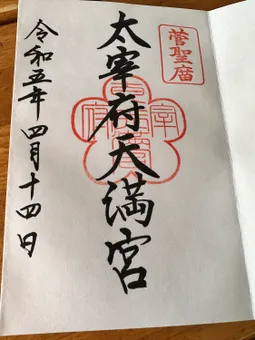 菅聖庿
太宰府天満宮
令和五年四月十四日